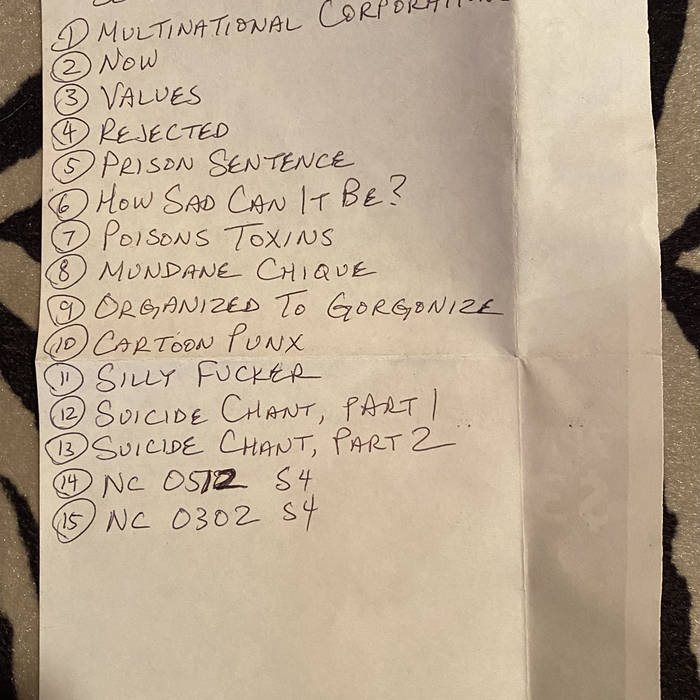 ① MULTINATIONAL CORPORATIONS
② NOW
③ VALUES
④ REJECTED
⑤ PRISON SENTENCE
⑥ HOW SAD CAN IT BE?
⑦ POISONS TOXINS
⑧ MUNDANE CHIQUE
⑨ ORGANIZED TO GORGONIZE
⑩ CARTOON PUNX
⑪ SILLY FUCKER
⑫ SUICIDE CHANT, PART 1
⑬ SUICIDE CHANT, PART 2
⑭ NC 0512 S4
⑮ NC 0302 S4